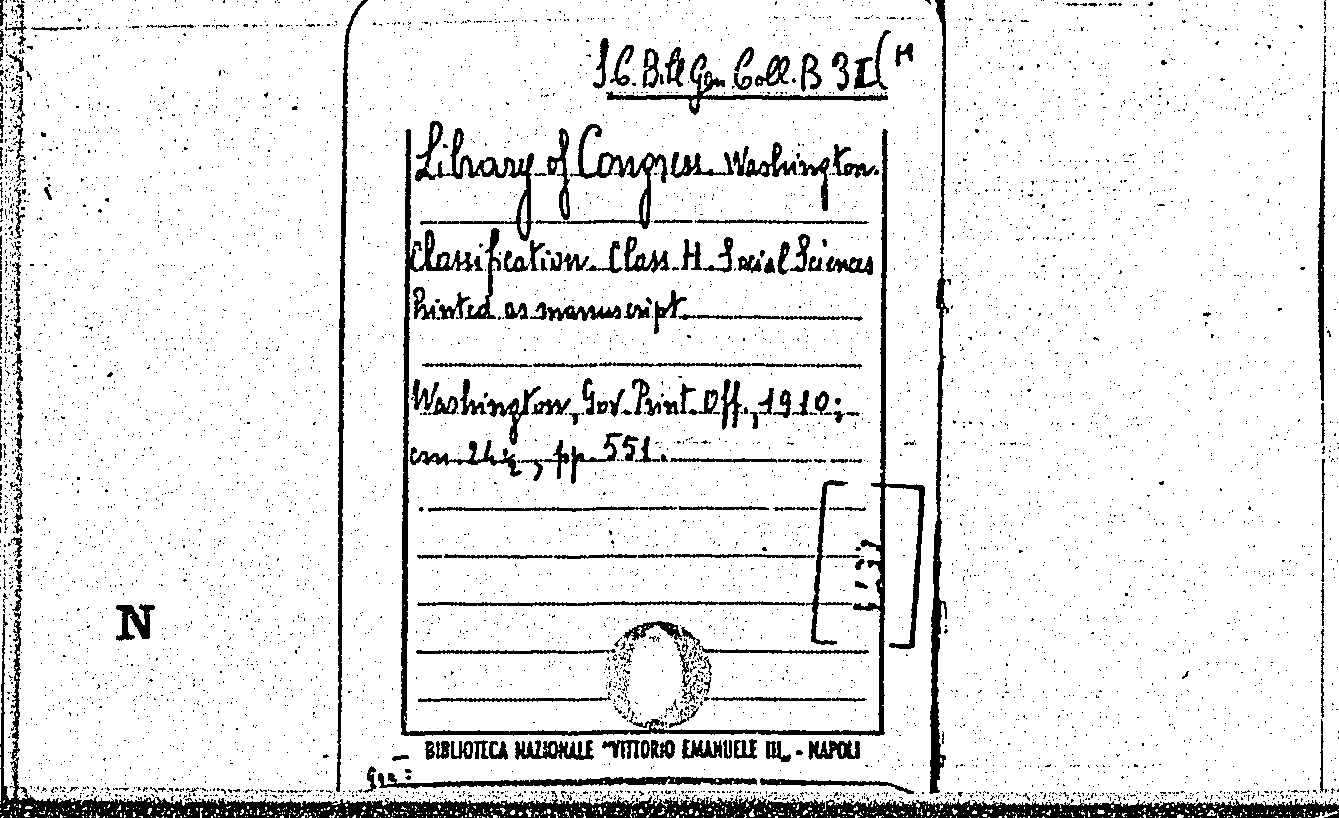 S.C. Bibl Gen Coll. B 3I (H
Library of Congress. Washington.
Classification. Class H. Social Sciences
Printed as manuscript.
Washington, Gov. Print. Off., 1910;
cm. 24½, pp. 551.
N
BIBLIOTECA NAZIONALE "VITTORIO EMANUELE III„ - NAPOLI